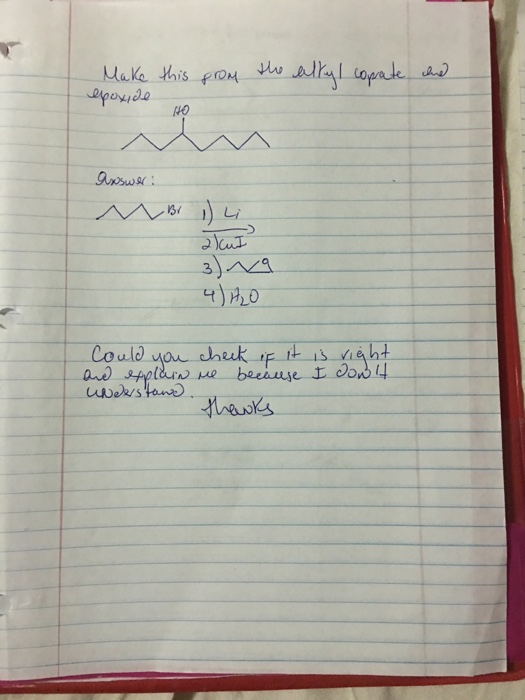 Make this from the alkyl coprate and
epoxide
HO
Answer:
Br 1) Li
2) CuI
3)
4) H2O
Could you check if it is right
and explain me because I don't
understand.
thanks